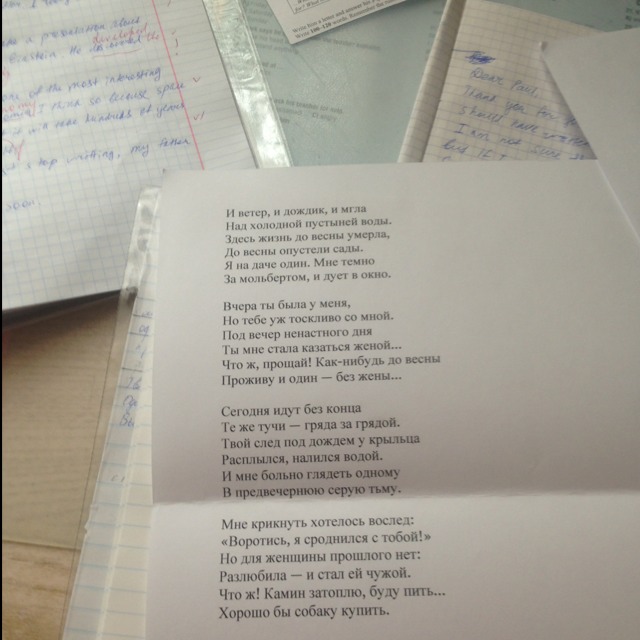 И ветер, и дождик, и мгла
Над холодной пустыней воды.
Здесь жизнь до весны умерла,
До весны опустели сады.
Я на даче один. Мне темно
За мольбертом, и дует в окно.
Вчера ты была у меня,
Но тебе уж тоскливо со мной.
Под вечер ненастного дня
Ты мне стала казаться женой...
Что ж, прощай! Как-нибудь до весны
Проживу и один — без жены...
Сегодня идут без конца
Те же тучи — гряда за грядой.
Твой след под дождем у крыльца
Расплылся, налился водой.
И мне больно глядеть одному
В предвечернюю серую тьму.
Мне крикнуть хотелось вослед:
«Воротись, я сроднился с тобой!»
Но для женщины прошлого нет:
Разлюбила — и стал ей чужой.
Что ж! Камин затоплю, буду пить...
Хорошо бы собаку купить.
of the most interesting
I think so because space
stop writing, my
Dear Paul,
Thank you for
should have
I am not sure
but if I